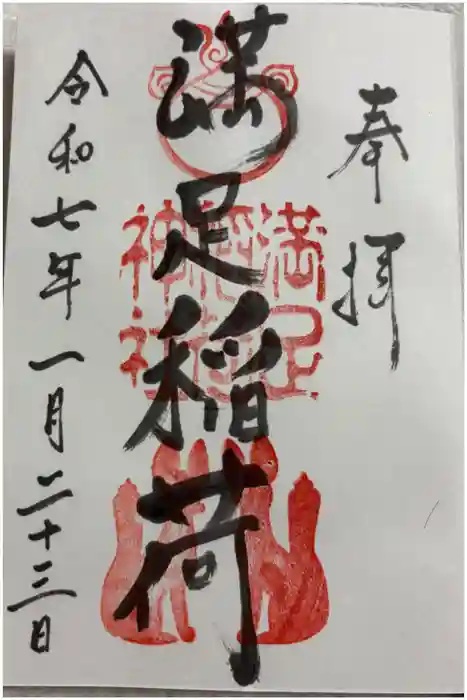 奉拝
満足稲荷
満足稲荷神社
令和七年一月二十三日